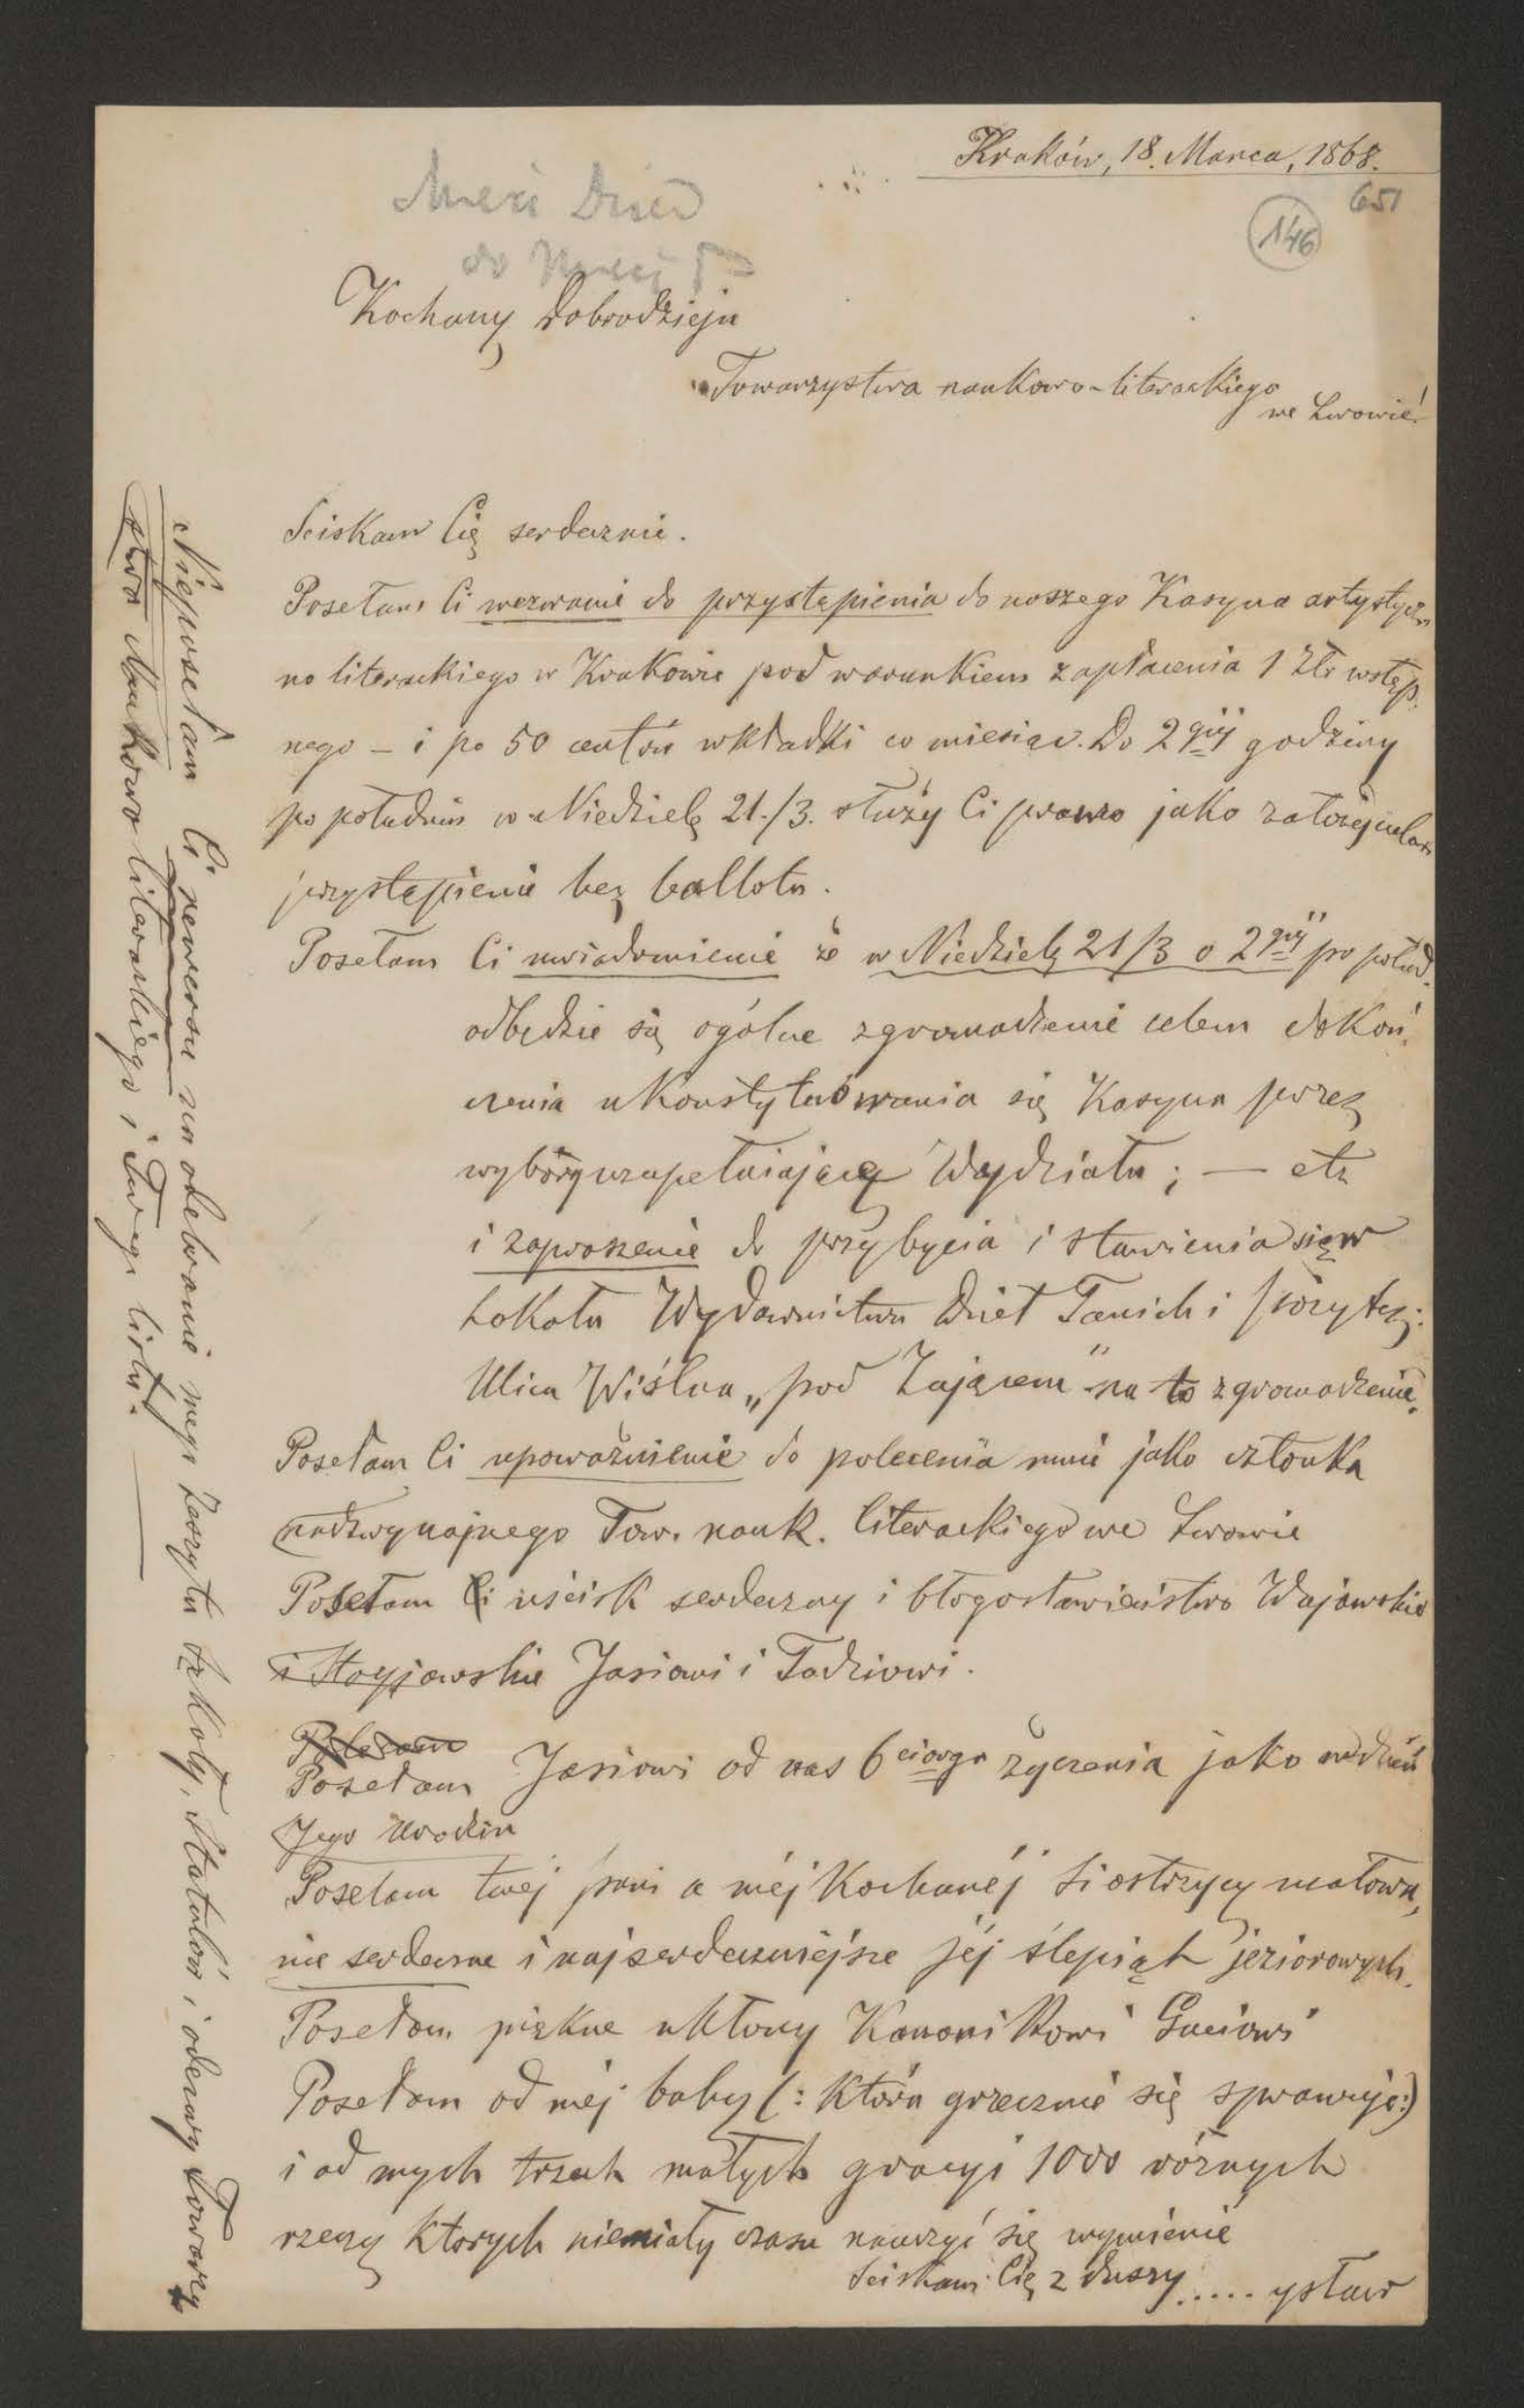 Kraków, 18. Marca, 1868.
651
146
Kochany Dobrodzieju
Towarzystwa naukowo-literackiego
we Lwowie!
Sciskam Cię serdecznie.
Posełam Ci wezwanie do przystąpienia do naszego Kasyna artystycz-
no literackiego w Krakowie pod warunkiem zapłacenia 1 złr wstęp-
nego – i po 50 centów wkładki co miesiąc. Do 2giéj godziny
po południu w Niedzielę 21./3. służy Ci prawo jako założycielowi
przystąpienie bez ballotu.
Posełam Ci uwiadomienie że w Niedzielę 21/3 o 2giéj po połud.
odbędzie się ogólne zgromadzenie celem dokoń-
czenia ukonstytuowania się Kasyna przez
wybóry uzupełniający Wydziału; — etc
i zaproszenie do przybycia i stawienia się w
Lokalu Wydawnictwa Dzieł Tanich i pożytecz:
Ulica Wiślna „pod Zającem" na to zgromadzenie.
Posełam Ci upoważnienie do polecenia mnie jako członka
nadzwyczajnego Tow. nauk. literackiego we Lwowie
Posełam Ci uścisk serdeczny i błogosławieństwo Wujowskie
i Stryjowskie Jasiowi i Tadziowi.
Posełam Jasiowi od nas 6ciorga życzenia jako w dzień
Jego Urodzin
Posełam twej pani a méj Kochanéj Siostrzycy
nie serdeczne i najserdeczniejsze jéj ślepiąt jeziorowych.
Posełam piękne ukłony Kanonikowi Guciowi
Posełam od méj baby (: która grzecznie się sprawuje:)
i od mych trzech małych gracyi 1000 różnych
rzeczy których niemiały czasu nauczyć się wymienić
Sciskam Cię z duszy ..... ysław
Nieposełam Ci rewersu na odebranie mego zeszytu Szkoły, Statutów i odezwy Towarzy-
stwa Naukowo literackiego i Twego listu.